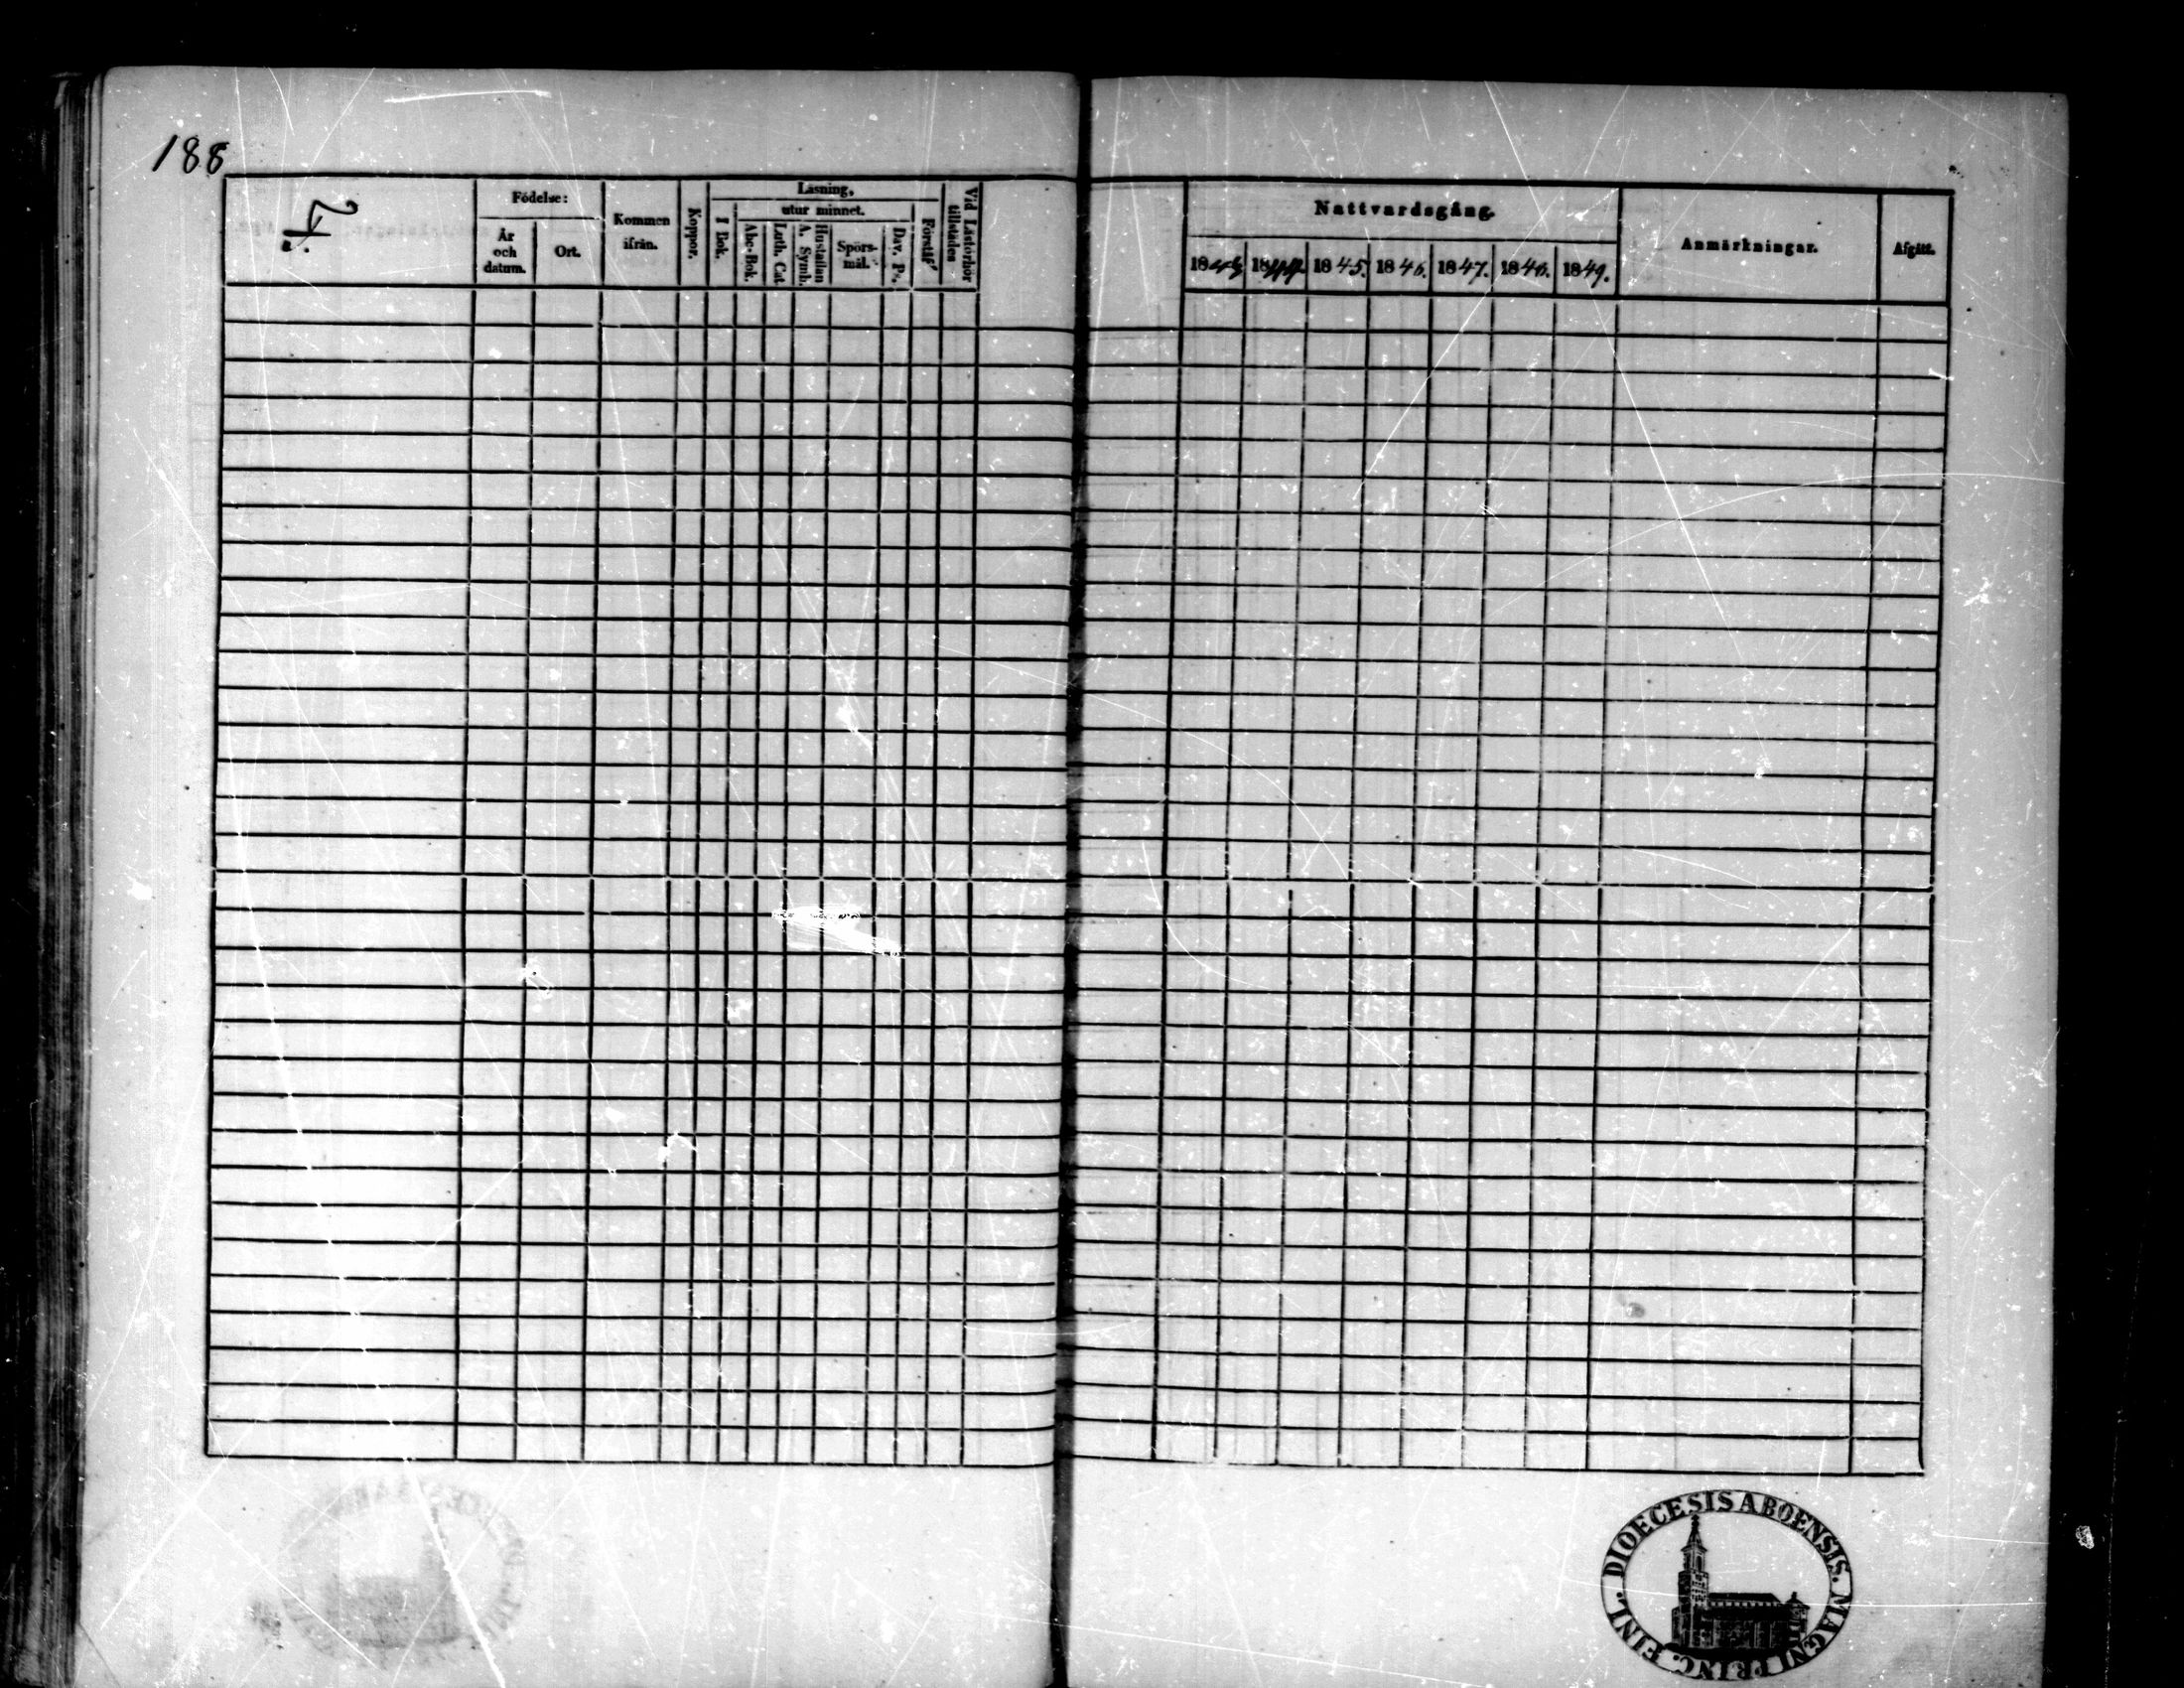 188
Födelse:
År och datum.
Ort.
Kommen ifrån.
Koppor.
Läsning,
I Bok.
utur minnet.
Abc-Bok.
Luth. Cat.
Hustaflan A. Symb.
Spörs-mål.
Dav. Ps.
Förstår
Vid Läsförhör tillstädes
Nattvardsgång.
1845. 1846. 1847. 1848. 1849.
Anmärkningar.
Afgått.
DIOECESIS ABOENSIS. MAGNI PRINC. FINL.